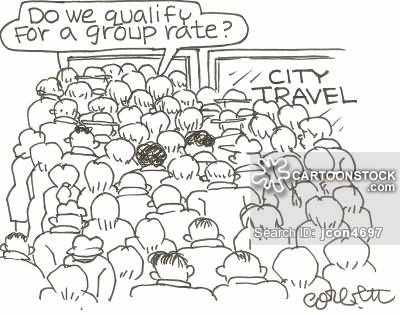 Do we qualify
for a group rate?
CITY
TRAVEL
CARTOONSTOCK
.com
Search ID: jcon4697
Corbett